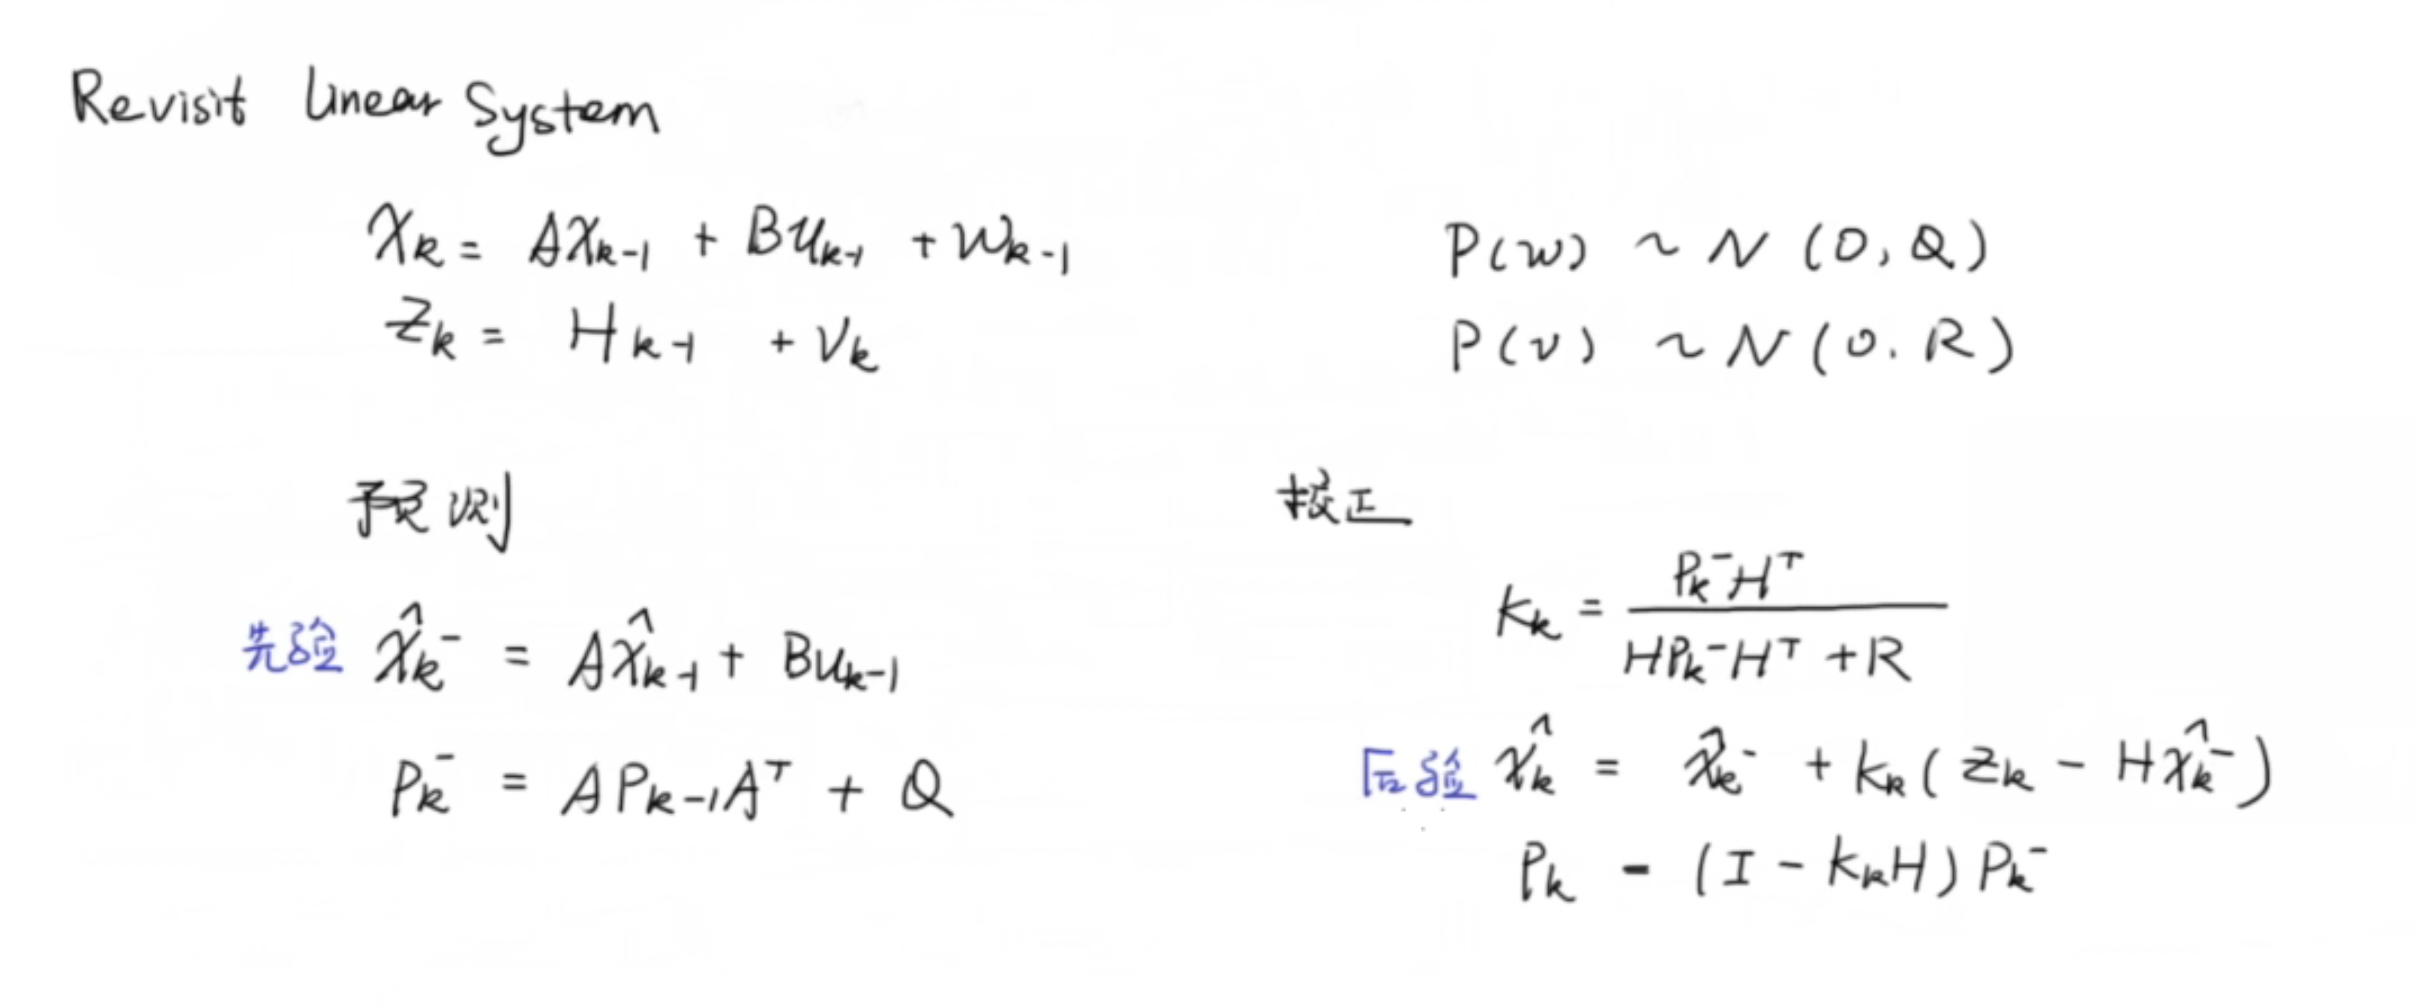 Revisit Linear System
X_k = AX_{k-1} + Bu_{k-1} + w_{k-1}
P(w) ~ N (0, Q)
Z_k = H_{k-1} + V_k
P(v) ~ N (0. R)
预测
校正
先验 x̂_k^- = Ax̂_{k-1} + Bu_{k-1}
P_k^- = AP_{k-1}A^T + Q
K_k = P_k^-H^T / (HP_k^-H^T + R)
后验 x̂_k = x̂_k^- + K_k(Z_k - Hx̂_k^-)
P_k - (I - K_kH) P_k^-